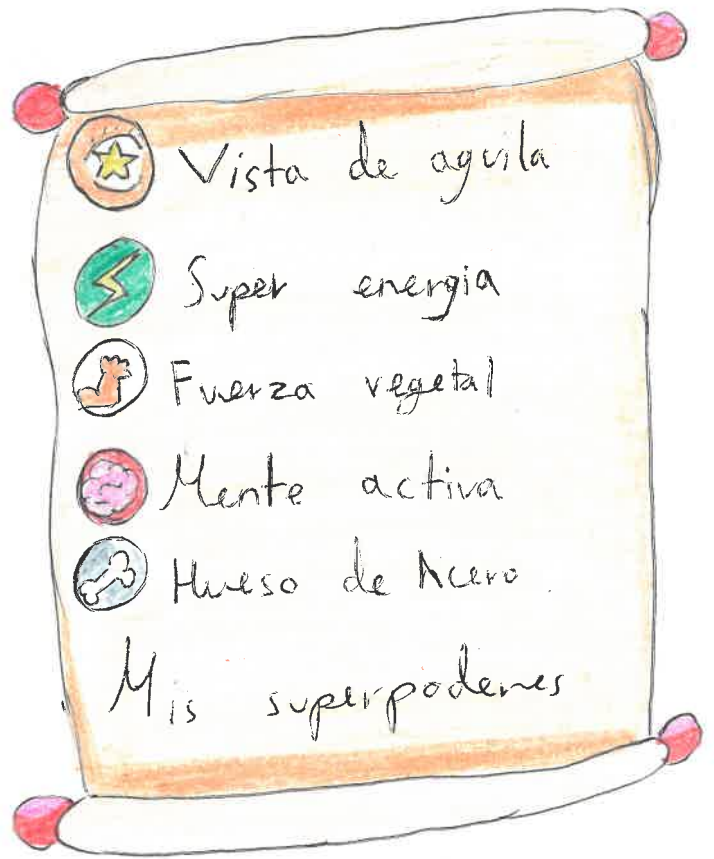 Vista de aguila
Super energia
Fuerza vegetal
Mente activa
Hueso de Acero.
Mis superpoderes